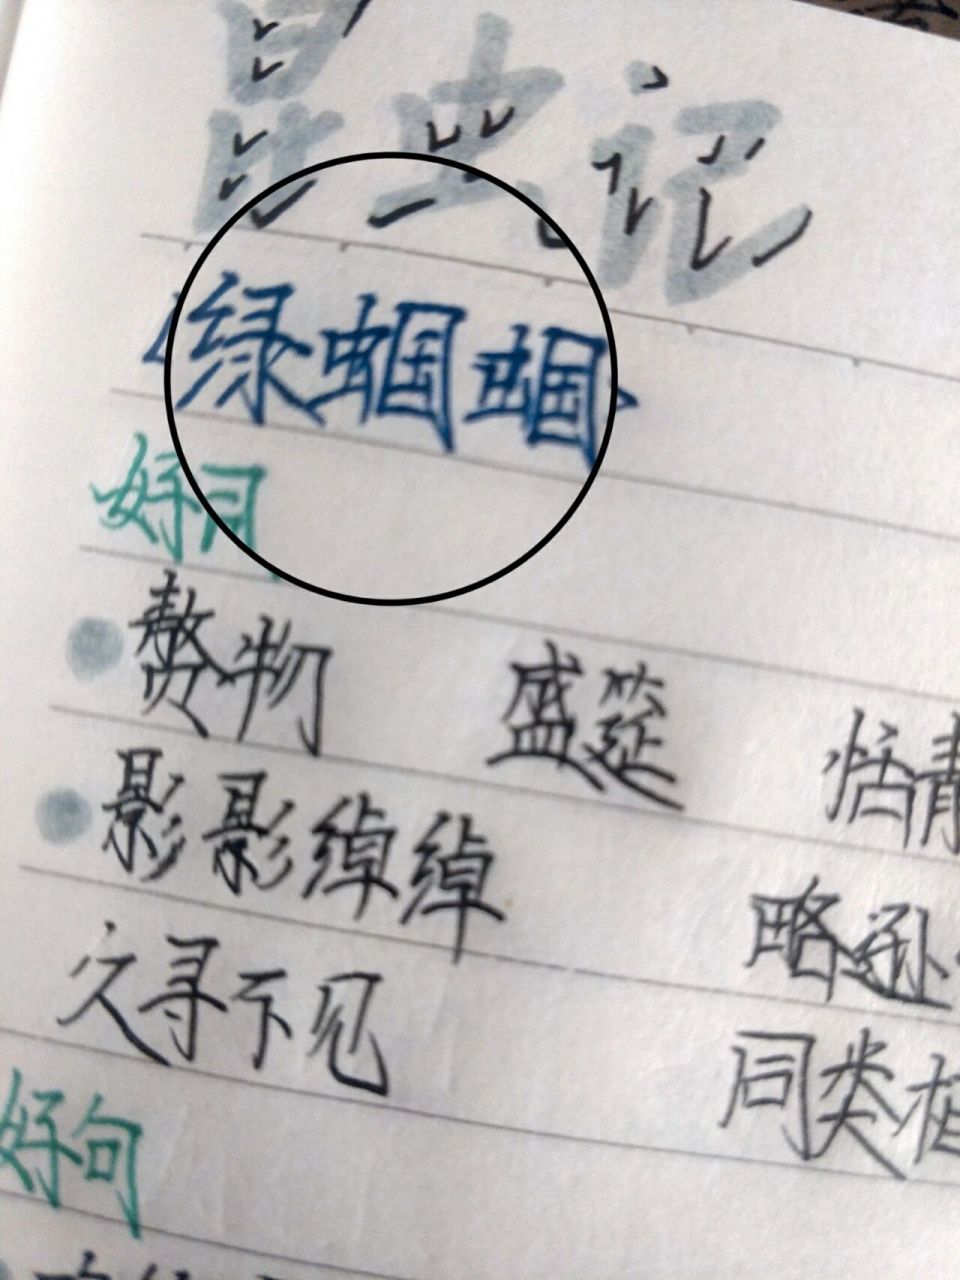 昆虫记
《绿蝈蝈》
好词
赘物 盛筵 恬静
影影绰绰 略逊
久寻不见 同类相
好句